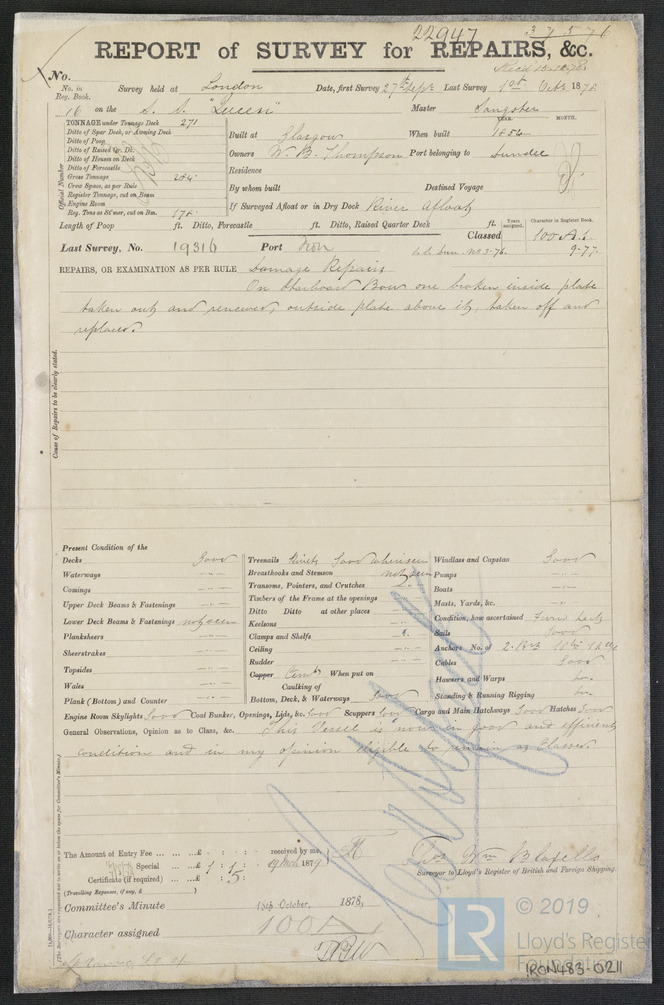 22947
REPORT of SURVEY for REPAIRS, &c.
No.
No. in Reg. Book. Survey held at London Date, first Survey 27th Sept Last Survey 1st Octr 1878
16 on the S. S. Master Sangster
TONNAGE under Tonnage Deck 271
YEAR. MONTH.
Ditto of Spar Deck, or Awning Deck
Ditto of Poop
Built at Glasgow When built
Ditto of Raised Qr. Dk.
Ditto of House on Deck
Owners W. B. Thompson Port belonging to Dundee
Ditto of Forecastle
Gross Tonnage
Residence
Crew Space, as per Rule
Register Tonnage, cut on Beam
By whom built Destined Voyage
Engine Room
Reg. Tons as St'mer, cut on Bm.
If Surveyed Afloat or in Dry Dock River Afloat
Official Number
Length of Poop ft. Ditto, Forecastle ft. Ditto, Raised Quarter Deck ft.
Years assigned. Character in Register Book.
Classed 100 A.1.
Last Survey, No. 19316 Port
9-77
REPAIRS, OR EXAMINATION AS PER RULE Damage Repairs
On Starboard Bow one broken inside plate
taken out and renewed, outside plate above it, taken off and
replaced.
Cause of Repairs to be clearly stated.
Present Condition of the
Decks Good
Waterways
Comings
Upper Deck Beams & Fastenings
Lower Deck Beams & Fastenings not seen
Planksheers
Sheerstrakes
Topsides
Wales
Plank (Bottom) and Counter
Treenails Rivets Good where seen
Breasthooks and Stemson not seen
Transoms, Pointers, and Crutches
Timbers of the Frame at the openings
Ditto Ditto at other places
Keelsons
Clamps and Shelfs
Ceiling
Rudder
Copper Cemt When put on
Caulking of
Bottom, Deck, & Waterways Good
Windlass and Capstan Good
Pumps
Boats
Masts, Yards, &c.
Condition, how ascertained
Sails Good
Anchors No. of
Cables Good
Hawsers and Warps
Standing & Running Rigging
Engine Room Skylights Good Coal Bunker, Openings, Lids, &c. Good Scuppers Good Cargo and Main Hatchways Good Hatches Good
General Observations, Opinion as to Class, &c. This Vessel is now in good and efficient
condition and in my opinion eligible to remain as Classed.
The Amount of Entry Fee £ : : received by me,
Special £ 1 : 1 : 19 March 1879
Certificate (if required) £ : 5 :
(Travelling Expenses, if any, £ )
Surveyor to Lloyd's Register of British and Foreign Shipping.
Committee's Minute 15th October, 1878,
Character assigned 100 A
© 2019
LR
Lloyd's Register
Foundation
IRON483-0211